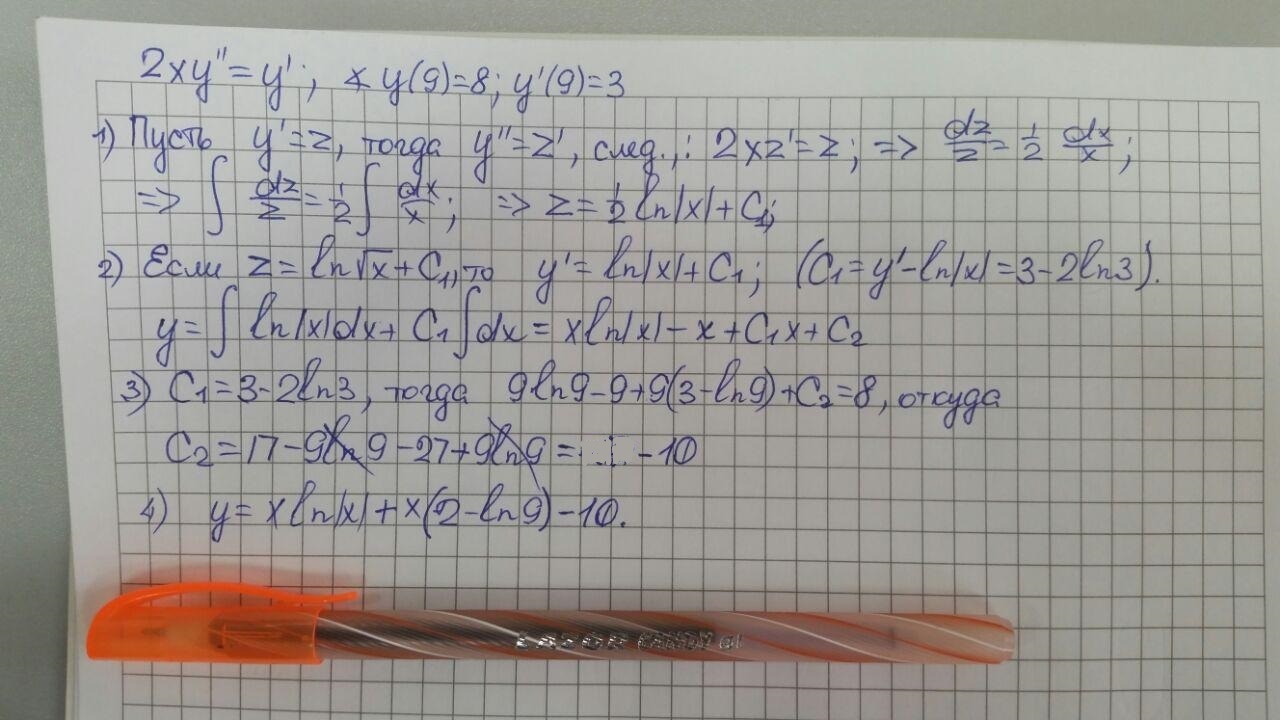 2xy''=y'; y(9)=8; y'(9)=3
1) Пусть y'=z, тогда y''=z', след.,: 2xz'=z; => dz/z = 1/2 dx/x;
=> ∫ dz/z = 1/2 ∫ dx/x; => z = 1/2 ln|x| + C₁;
2) Если z = ln√x + C₁, то y' = ln|x| + C₁; (C₁ = y' - ln|x| = 3 - 2ln3).
y = ∫ ln|x|dx + C₁ ∫ dx = x ln|x| - x + C₁x + C₂
3) C₁ = 3 - 2ln3, тогда 9ln9 - 9 + 9(3 - ln9) + C₂ = 8, откуда
C₂ = 17 - 9ln9 - 27 + 9ln9 = -10
4) y = x ln|x| + x(2 - ln9) - 10.
LAZOR CANDY GL